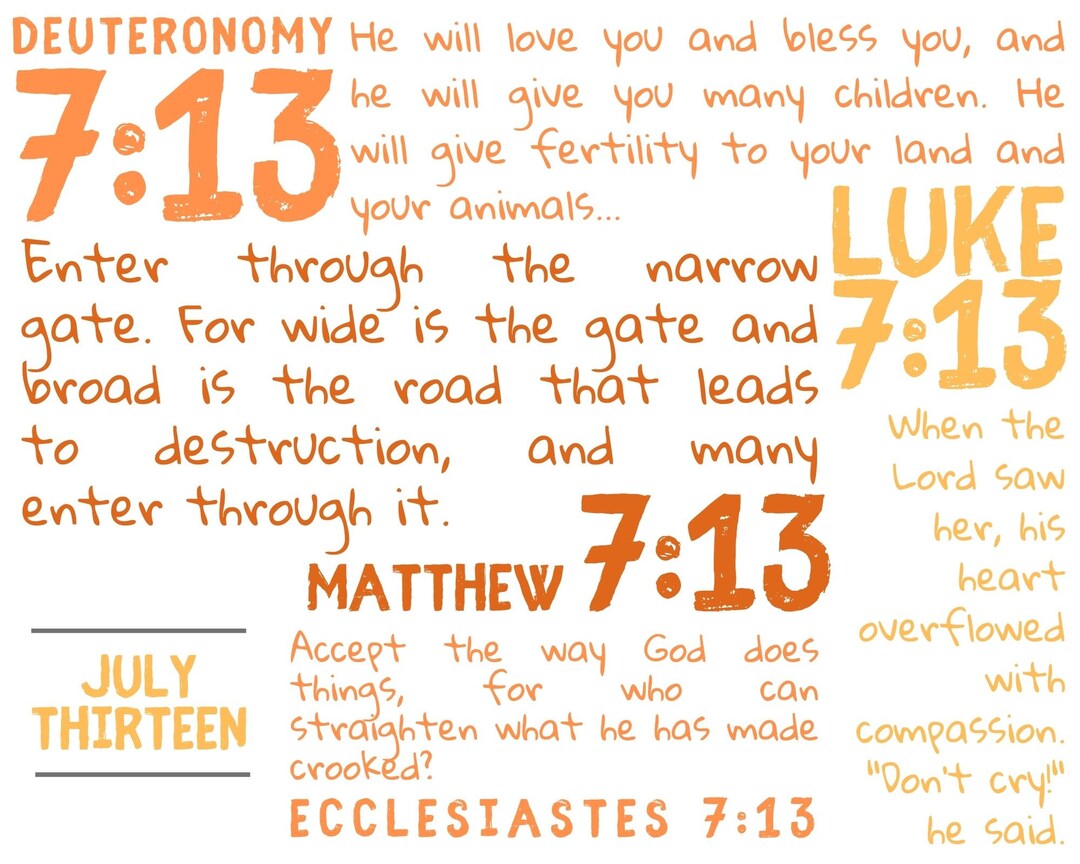 DEUTERONOMY
7:13
He will love you and bless you, and
he will give you many children. He
will give fertility to your land and
your animals...
LUKE
7:13
When the
Lord saw
her, his
heart
overflowed
with
compassion.
"Don't cry!"
he said.
Enter through the narrow
gate. For wide is the gate and
broad is the road that leads
to destruction, and many
enter through it.
MATTHEW 7:13
Accept the way God does
things, for who can
straighten what he has made
crooked?
ECCLESIASTES 7:13
JULY
THIRTEEN